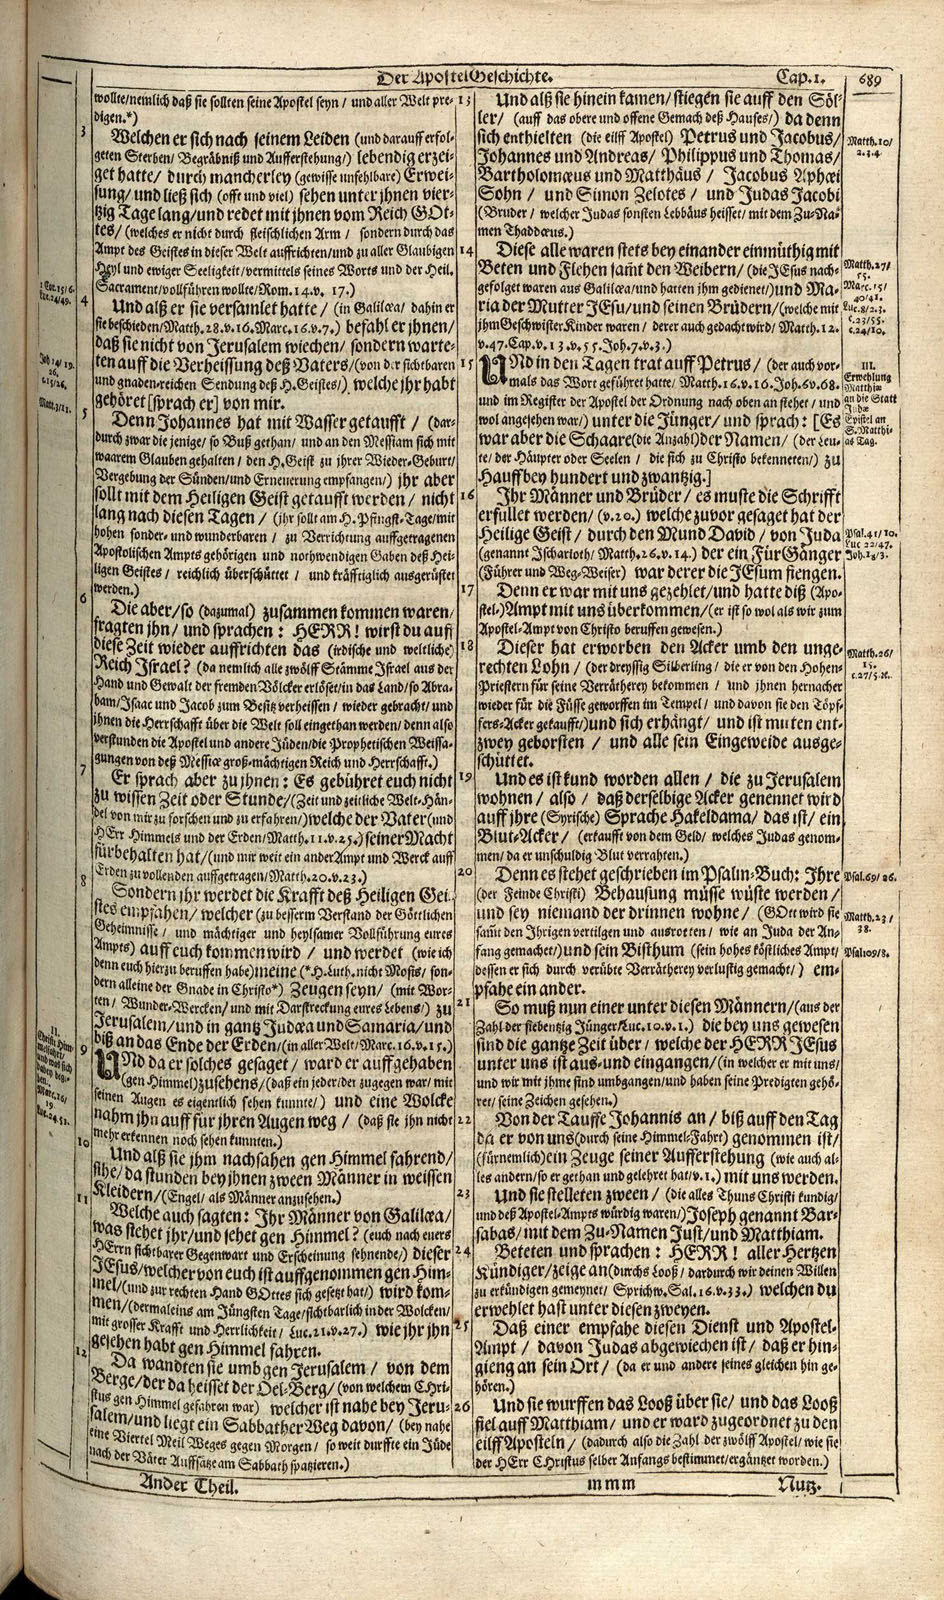 Der ApostelGeschichte.
Cap. 1.
689
wollte/nemlich daß sie sollten seine Apostel seyn/ und aller Welt pre-
digen.*)
3
Welchen er sich nach seinem Leiden (und darauff erfol-
geten Sterben/ Begräbniß und Aufferstehung/) lebendig erzei-
get hatte/ durch mancherley (gewisse unfehlbare) Erwei-
sung/ und ließ sich (offt und viel) sehen unter jhnen vier-
tzig Tage lang/ und redet mit jhnen vom Reich GOt-
tes/ (welches er nicht durch fleischlichen Arm/ sondern durch das
Ampt des Geistes in dieser Welt auffrichten/ und zu aller Glaubigen
Heyl und ewiger Seeligkeit/ vermittels seines Worts und der Heil.
Sacrament/ vollführen wollte/ Rom. 14. v. 17.)
4
Und alß er sie versamlet hatte/ (in Galilæa/ dahin er
sie beschieden/ Matth. 28. v. 16. Marc. 16. v. 7.) befahl er jhnen/
daß sie nicht von Jerusalem wiechen/ sondern warte-
ten auff die Verheissung deß Vaters/ (von der sichtbaren
und gnaden-reichen Sendung deß H. Geistes/) welche jhr habt
gehöret [sprach er] von mir.
5
Denn Johannes hat mit Wasser getaufft/ (dar-
durch zwar die jenige/ so Buß gethan/ und an den Messiam sich mit
waarem Glauben gehalten/ den H. Geist zu jhrer Wieder-Geburt/
Vergebung der Sünden/ und Erneuerung empfangen/) jhr aber
sollt mit dem Heiligen Geist getaufft werden/ nicht
lang nach diesen Tagen/ (jhr sollt am H. Pfingst-Tage/ mit
hohen sonder- und wunderbaren/ zu Verrichtung auffgetragenen
Apostolischen Ampts gehörigen und nothwendigen Gaben deß Hei-
ligen Geistes/ reichlich überschüttet/ und kräfftiglich ausgerüstet
werden.)
6
Die aber/ so (dazumal) zusammen kommen waren/
fragten jhn/ und sprachen: HERR! wirst du auff
diese Zeit wieder auffrichten das (irdische und weltliche)
Reich Israel? (da nemlich alle zwölff Stämme Israel aus der
Hand und Gewalt der fremden Völcker erlöset/ in das Land/ so Abra-
ham/ Isaac und Jacob zum Besitz verheissen/ wieder gebracht/ und
jhnen die Herrschafft über die Welt soll eingethan werden/ denn also
verstunden die Apostel und andere Jüden/ die Prophetischen Weissa-
gungen von deß Messiæ groß-mächtigen Reich und Herrschafft.)
7
Er sprach aber zu jhnen: Es gebühret euch nicht
zu wissen Zeit oder Stunde/ (Zeit und zeitliche Welt-Hän-
del von mir zu forschen und zu erfahren/) welche der Vater (und
HErr Himmels und der Erden/ Matth. 11. v. 25.) seiner Macht
fürbehalten hat/ (und mir weit ein ander Ampt und Werck auff
Erden zu vollenden auffgetragen/ Matth. 20. v. 23.)
8
Sondern jhr werdet die Krafft deß Heiligen Gei-
stes empfahen/ welcher (zu besserm Verstand der Göttlichen
Geheimnisse/ und mächtiger und heylsamer Vollführung eures
Ampts) auff euch kommen wird/ und werdet (wie ich
denn euch hierzu beruffen habe) meine (*H. Luth. nicht Mosis/ son-
dern alleine der Gnade in Christo*) Zeugen seyn/ (mit Wor-
ten/ Wunder-Wercken/ und mit Darstreckung eures Lebens/) zu
Jerusalem/ und in gantz Judæa und Samaria/ und
biß an das Ende der Erden/ (in aller Welt/ Marc. 16. v. 15.)
9
UNd da er solches gesaget/ ward er auffgehaben
(gen Himmel) zusehens/ (daß ein jeder/ der zugegen war/ mit
seinen Augen es eigentlich sehen kunnte/) und eine Wolcke
nahm jhn auff für jhren Augen weg/ (daß sie jhn nicht
mehr erkennen noch sehen kunnten.)
10
Und alß sie jhm nachsahen gen Himmel fahrend/
sihe/ da stunden bey jhnen zween Männer in weissen
Kleidern/ (Engel/ als Männer anzusehen.)
11
Welche auch sagten: Ihr Männer von Galilæa/
was stehet jhr/ und sehet gen Himmel? (euch nach euers
HErrn sichtbarer Gegenwart und Erscheinung sehnende/) dieser
JEsus/ welcher von euch ist auffgenommen gen Him-
mel/ (und zur rechten Hand GOttes sich gesetzt hat/) wird kom-
men/ (dermaleins am Jüngsten Tage/ sichtbarlich in der Wolcken/
mit grosser Krafft und Herrlichkeit/ Luc. 21. v. 27.) wie jhr jhn
gesehen habt gen Himmel fahren.
12
Da wandten sie umb gen Jerusalem/ von dem
Berge/ der da heisset der Oel-Berg/ (von welchem Chri-
stus gen Himmel gefahren war) welcher ist nahe bey Jeru-
salem/ und liegt ein Sabbather Weg davon/ (bey nahe
eine Viertel Meil Weges gegen Morgen/ so weit durffte ein Jüde
nach der Väter Auffsätze am Sabbath spatzieren.)
1 Cor. 15/ 6.
Luc. 24/ 49.
Joh 14/ 19.
26.
c. 15/ 26.
Matt. 3/ 11.
II.
Christi Him-
melfahrt/
und was sich
dabey bege-
ben.
Marc. 16/
19.
Luc. 24. 51.
13
Und alß sie hinein kamen/ stiegen sie auff den Söl-
ler/ (auff das obere und offene Gemach deß Hauses/) da denn
sich enthielten (die eilff Apostel) Petrus und Jacobus/
Johannes und Andreas/ Philippus und Thomas/
Bartholomæus und Matthäus/ Jacobus Alphæi
Sohn/ und Simon Zelotes/ und Judas Jacobi
(Bruder/ welcher Judas sonsten Lebbäus heisset/ mit dem Zu-Na-
men Thaddæus.)
14
Diese alle waren stets bey einander einmüthig mit
Beten und Flehen sam̃t den Weibern/ (die JEsus nach-
gefolget waren aus Galilæa/ und hatten jhm gedienet/) und Ma-
ria der Mutter JEsu/ und seinen Brüdern/ (welche mit
jhm Geschwister Kinder waren/ derer auch gedacht wird/ Matth. 12.
v. 47. Cap. v. 13. v. 55. Joh. 7. v. 3.)
15
UNd in den Tagen trat auff Petrus/ (der auch vor-
mals das Wort geführet hatte/ Matth. 16. v. 16. Joh. 6. v. 68.
und im Register der Apostel der Ordnung nach oben an stehet/ und
wol angesehen war/) unter die Jünger/ und sprach: [Es
war aber die Schaare (die Anzahl) der Namen/ (der Leu-
te/ der Häupter oder Seelen/ die sich zu Christo bekenneten/) zu
Hauff bey hundert und zwantzig.]
16
Ihr Männer und Brüder/ es muste die Schrifft
erfüllet werden/ (v. 20.) welche zuvor gesaget hat der
Heilige Geist/ durch den Mund David/ von Juda
(genannt Ischarioth/ Matth. 26. v. 14.) der ein FürGänger
(Führer und Weg-Weiser) war derer die JEsum fiengen.
17
Denn er war mit uns gezehlet/ und hatte diß (Apo-
stel-) Ampt mit uns überkommen/ (er ist so wol als wir zum
Apostel-Ampt von Christo beruffen gewesen.)
18
Dieser hat erworben den Acker umb den unge-
rechten Lohn/ (der dreyssig Silberling/ die er von den Hohen-
Priestern für seine Verrätherey bekommen/ und jhnen hernacher
wieder für die Füsse geworffen im Tempel/ und davon sie den Töpf-
fers-Acker gekaufft/) und sich erhängt/ und ist mitten ent-
zwey geborsten/ und alle sein Eingeweide ausge-
schüttet.
19
Und es ist kund worden allen/ die zu Jerusalem
wohnen/ also/ daß derselbige Acker genennet wird
auff jhre (Syrische) Sprache Hakeldama/ das ist/ ein
Blut-Acker/ (erkaufft von dem Geld/ welches Judas genom-
men/ da er unschuldig Blut verrahten.)
20
Denn es stehet geschrieben im Psalm-Buch: Ihre
(der Feinde Christi) Behausung müsse wüste werden/
und sey niemand der drinnen wohne/ (GOtt wird sie
sam̃t den Ihrigen vertilgen und ausrotten/ wie an Juda der An-
fang gemachet/) und sein Bisthum (sein hohes köstliches Ampt/
dessen er sich durch verübte Verrätherey verlustig gemacht/) em-
pfahe ein ander.
21
So muß nun einer unter diesen Männern/ (aus der
Zahl der siebentzig Jünger/ Luc. 10. v. 1.) die bey uns gewesen
sind die gantze Zeit über/ welche der HERR JEsus
unter uns ist aus- und eingangen/ (in welcher er mit uns/
und wir mit jhme sind umbgangen/ und haben seine Predigten gehö-
ret/ seine Zeichen gesehen.)
22
Von der Tauffe Johannis an/ biß auff den Tag
da er von uns (durch seine Himmel-Fahrt) genommen ist/
(fürnemlich) ein Zeuge seiner Aufferstehung (wie auch al-
les andern/ so er gethan und gelehret hat/ v. 1.) mit uns werden.
23
Und sie stelleten zween/ (die alles Thuns Christi kundig/
und deß Apostel-Ampts würdig waren/) Joseph genannt Bar-
sabas/ mit dem Zu-Namen Just/ und Matthiam.
24
Beteten und sprachen: HERR! aller Hertzen
Kündiger/ zeige an (durchs Looß/ dardurch wir deinen Willen
zu erkündigen gemeynet/ Sprichw. Sal. 16. v. 33.) welchen du
erwehlet hast unter diesen zweyen.
25
Daß einer empfahe diesen Dienst und Apostel-
Ampt/ davon Judas abgewiechen ist/ daß er hin-
gieng an sein Ort/ (da er und andere seines gleichen hin ge-
hören.)
26
Und sie wurffen das Looß über sie/ und das Looß
fiel auff Matthiam/ und er ward zugeordnet zu den
eilff Aposteln/ (dadurch also die Zahl der zwölff Apostel/ wie sie
der HErr Christus selber Anfangs bestimmet/ ergäntzet worden.)
Matth. 10/
2. 3. 4.
Matth. 27/
55.
Marc. 15/
40/ 41.
Luc. 8/ 2. 3.
c. 23/ 55.
c. 24/ 10.
III.
Erwehlung
Matthiæ
an die Statt
Judæ
Epistel an
S. Matthi-
as Tag.
Psal. 41/ 10.
Luc 22/ 47.
Joh. 18/ 3.
Matth. 26/
15.
c. 27/ 5. ꝛc.
Psal. 69/ 26.
Matth. 23/
38.
Psal 109/ 8.
Ander Theil.
m m m
Nutz.